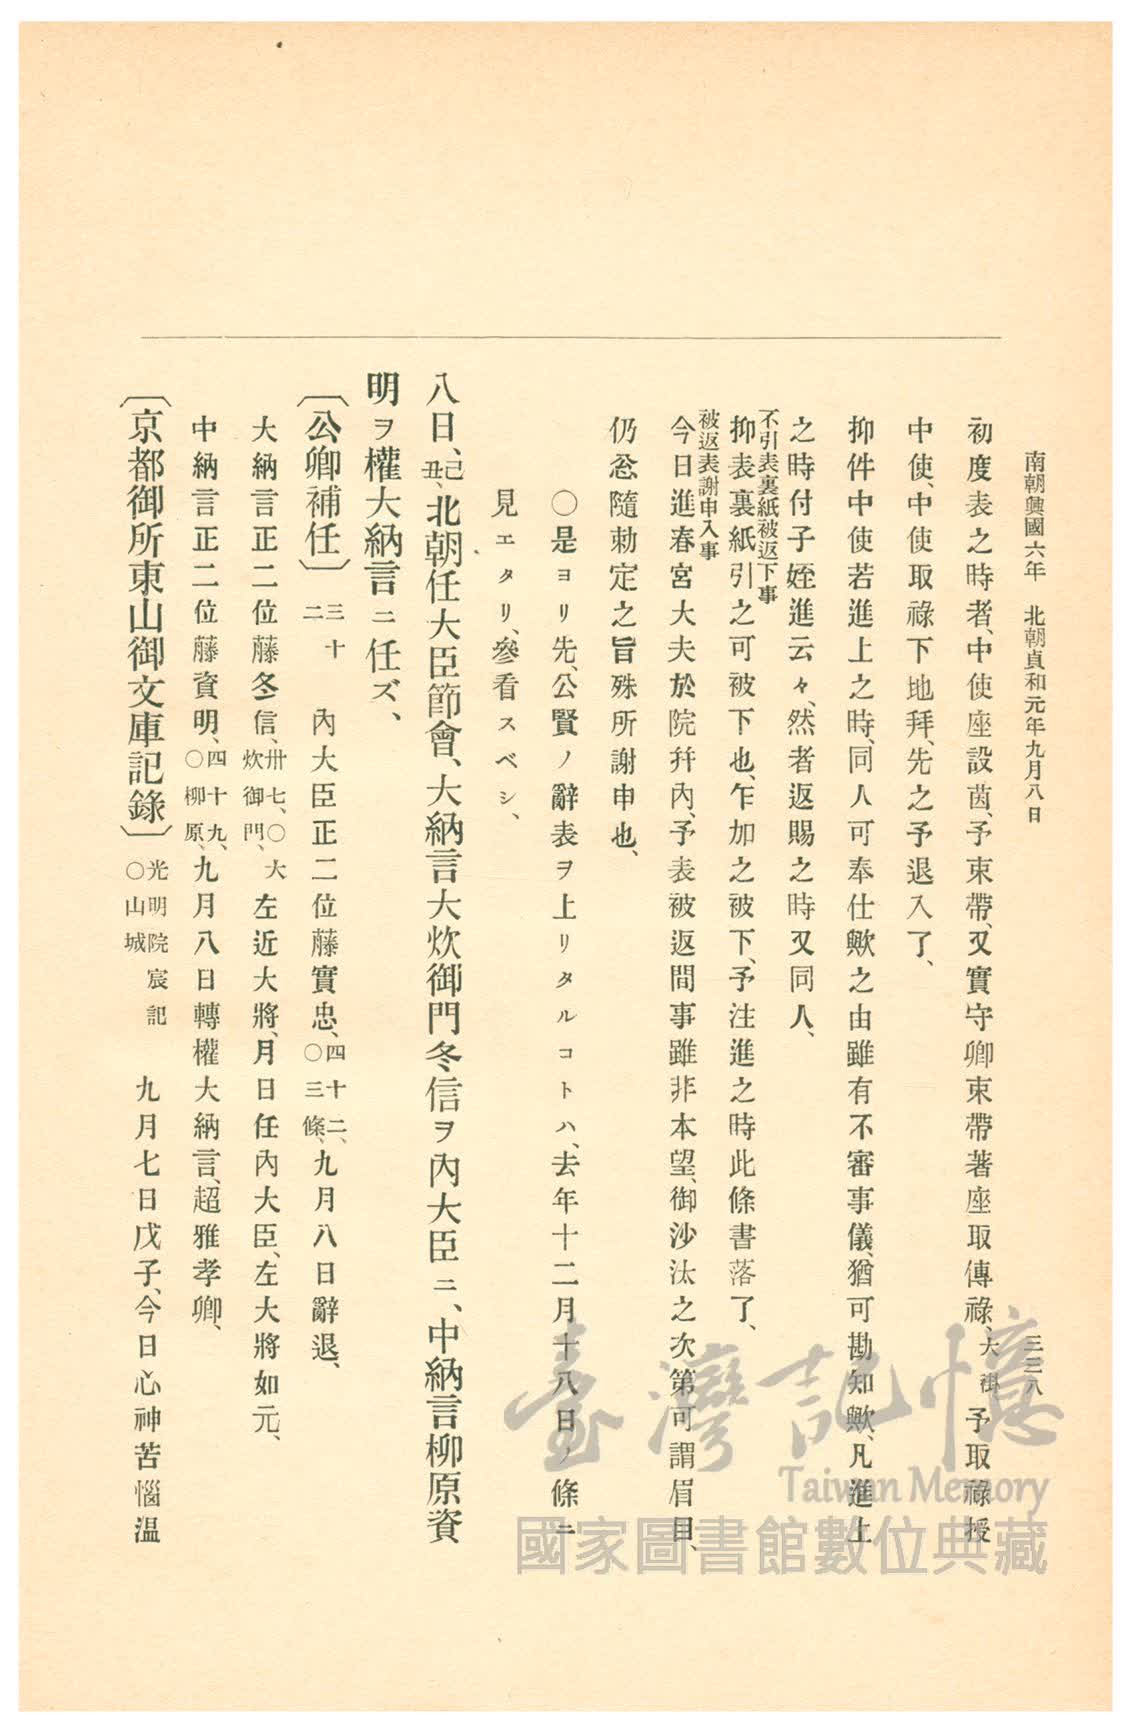 南朝興國六年　北朝貞和元年九月八日
三二八
初度表之時者、中使座設茵、予束帶、又實守卿束帶著座取傳祿、大褂予取祿授
中使、中使取祿下地拜、先之予退入了、
抑件中使若進上之時、同人可奉仕歟之由雖有不審事儀、猶可勘知歟、凡進上
之時付子姪進云々、然者返賜之時又同人、
不引表裏紙被返下事
抑表裏紙引之可被下也、乍加之被下、予注進之時此條書落了、
被返表謝申入事
今日進春宮大夫於院幷內、予表被返間事雖非本望、御沙汰之次第可謂眉目、
仍忩隨勅定之旨殊所謝申也、
○是ヨリ先、公賢ノ辭表ヲ上リタルコトハ、去年十二月十八日ノ條ニ
見エタリ、參看スベシ、
八日、己丑、北朝任大臣節會、大納言大炊御門冬信ヲ內大臣ニ、中納言柳原資
明ヲ權大納言ニ任ズ、
〔公卿補任〕三十二　內大臣正二位藤實忠、四十二、○三條、九月八日辭退、
大納言正二位藤冬信、卅七、○大炊御門、左近大將、月日任內大臣、左大將如元、
中納言正二位藤資明、四十九、○柳原、九月八日轉權大納言、超雅孝卿、
〔京都御所東山御文庫記錄〕光明院宸記○山城　九月七日戊子、今日心神苦惱溫
臺灣記憶
Taiwan Memory
國家圖書館數位典藏